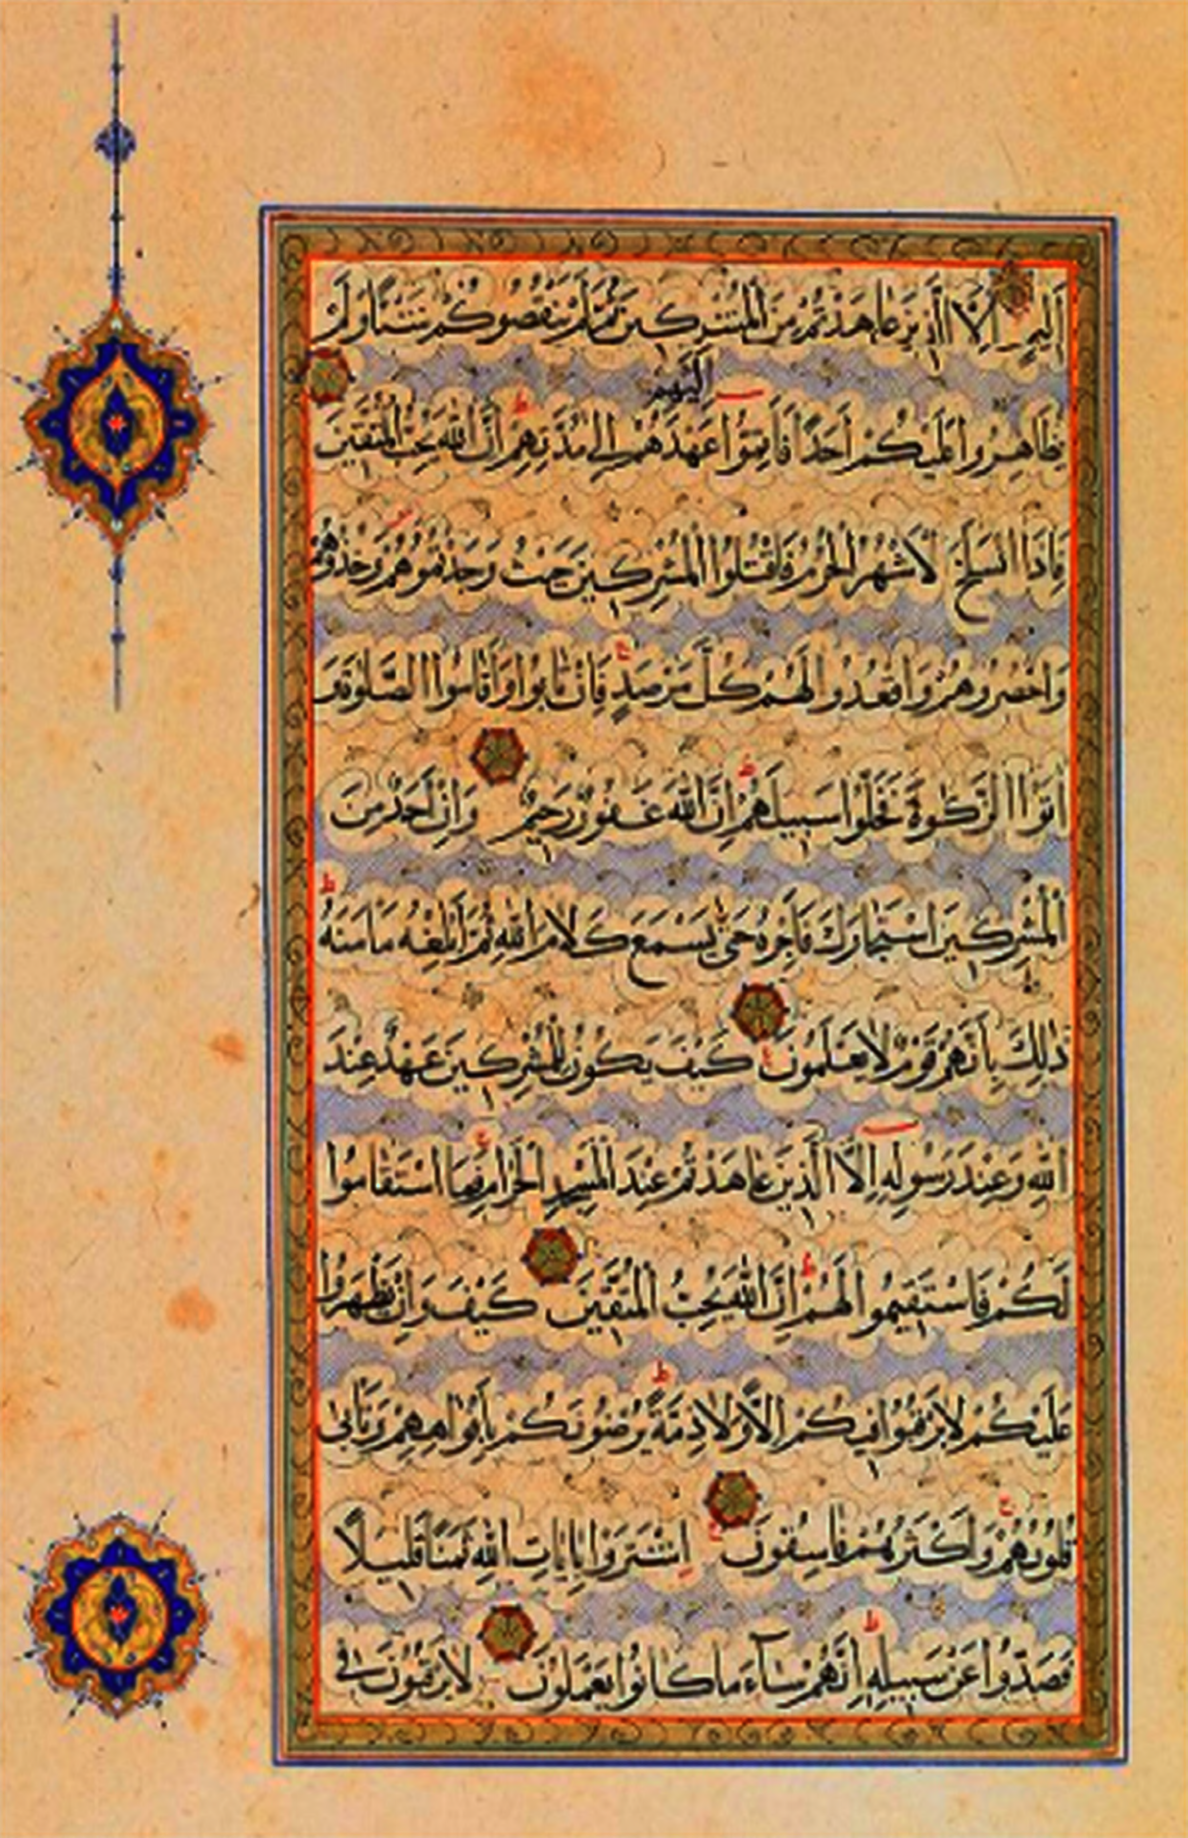 اَلِيمٍ اِلَّا الَّذِينَ عَاهَدْتُمْ مِنَ الْمُشْرِكِينَ ثُمَّ لَمْ يَنْقُصُوكُمْ شَيْئًا وَلَمْ
يُظَاهِرُوا عَلَيْكُمْ اَحَدًا فَاَتِمُّوا اِلَيْهِمْ عَهْدَهُمْ اِلٰى مُدَّتِهِمْ اِنَّ اللّٰهَ يُحِبُّ الْمُتَّقِينَ
فَاِذَا انْسَلَخَ الْاَشْهُرُ الْحُرُمُ فَاقْتُلُوا الْمُشْرِكِينَ حَيْثُ وَجَدْتُمُوهُمْ وَخُذُوهُمْ
وَاحْصُرُوهُمْ وَاقْعُدُوا لَهُمْ كُلَّ مَرْصَدٍ فَاِنْ تَابُوا وَاَقَامُوا الصَّلٰوةَ وَ
اٰتَوُا الزَّكٰوةَ فَخَلُّوا سَبِيلَهُمْ اِنَّ اللّٰهَ غَفُورٌ رَحِيمٌ وَاِنْ اَحَدٌ مِنَ
الْمُشْرِكِينَ اسْتَجَارَكَ فَاَجِرْهُ حَتّٰى يَسْمَعَ كَلَامَ اللّٰهِ ثُمَّ اَبْلِغْهُ مَاْمَنَهُ
ذٰلِكَ بِاَنَّهُمْ قَوْمٌ لَا يَعْلَمُونَ كَيْفَ يَكُونُ لِلْمُشْرِكِينَ عَهْدٌ عِنْدَ
اللّٰهِ وَعِنْدَ رَسُولِهِ اِلَّا الَّذِينَ عَاهَدْتُمْ عِنْدَ الْمَسْجِدِ الْحَرَامِ فَمَا اسْتَقَامُوا
لَكُمْ فَاسْتَقِيمُوا لَهُمْ اِنَّ اللّٰهَ يُحِبُّ الْمُتَّقِينَ كَيْفَ وَاِنْ يَظْهَرُوا
عَلَيْكُمْ لَا يَرْقُبُوا فِيكُمْ اِلًّا وَلَا ذِمَّةً يُرْضُونَكُمْ بِاَفْوَاهِهِمْ وَتَاْبٰى
قُلُوبُهُمْ وَاَكْثَرُهُمْ فَاسِقُونَ اِشْتَرَوْا بِاٰيَاتِ اللّٰهِ ثَمَنًا قَلِيلًا
فَصَدُّوا عَنْ سَبِيلِهِ اِنَّهُمْ سَاءَ مَا كَانُوا يَعْمَلُونَ لَا يَرْقُبُونَ فِى